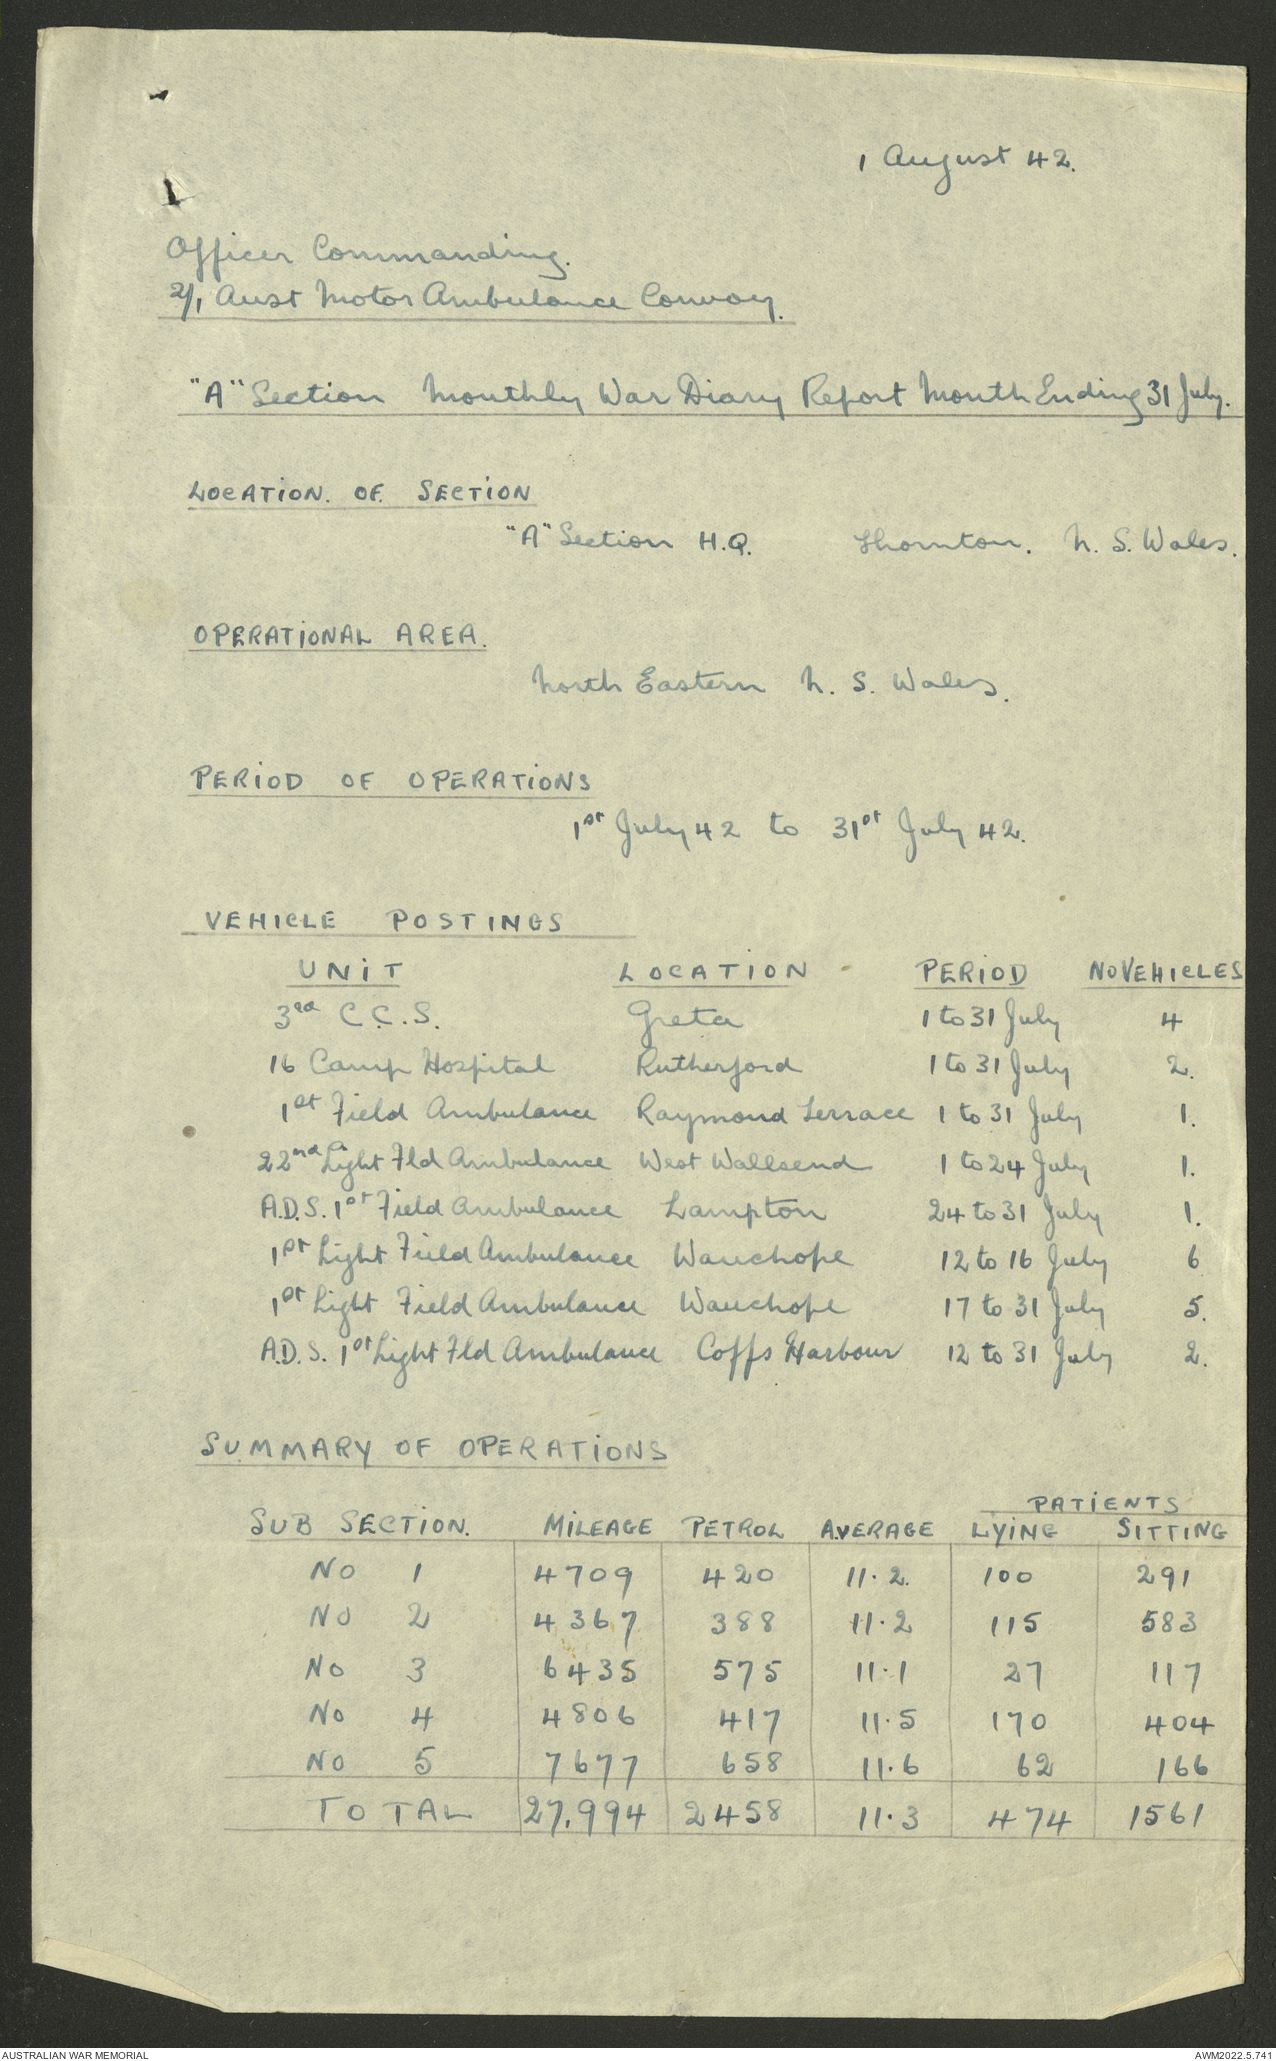 1 August 42.
Officer Commanding.
2/1 Aust Motor Ambulance Convoy.
"A" Section Monthly War Diary Report Month Ending 31 July.
LOCATION. OF. SECTION
"A" Section H.Q. Thornton. N. S. Wales.
OPERATIONAL AREA.
North Eastern N. S. Wales.
PERIOD OF OPERATIONS
1st July 42 to 31st July 42.
VEHICLE POSTINGS
UNIT LOCATION PERIOD NO VEHICLES
3rd C.C.S. Greta 1 to 31 July 4
16 Camp Hospital Rutherford 1 to 31 July 2.
1st Field Ambulance Raymond Terrace 1 to 31 July 1.
22nd Light Fld Ambulance West Wallsend 1 to 24 July 1.
A.D.S. 1st Field Ambulance Lampton 24 to 31 July 1.
1st Light Field Ambulance Wauchope 12 to 16 July 6
1st Light Field Ambulance Wauchope 17 to 31 July 5.
A.D.S. 1st Light Fld Ambulance Coffs Harbour 12 to 31 July 2.
SUMMARY OF OPERATIONS
PATIENTS
SUB SECTION. MILEAGE PETROL AVERAGE LYING SITTING
NO 1 4709 420 11.2. 100 291
NO 2 4367 388 11.2 115 583
NO 3 6435 575 11.1 27 117
NO 4 4806 417 11.5 170 404
NO 5 7677 658 11.6 62 166
TOTAL 27,994 2458 11.3 474 1561
AUSTRALIAN WAR MEMORIAL
AWM2022.5.741